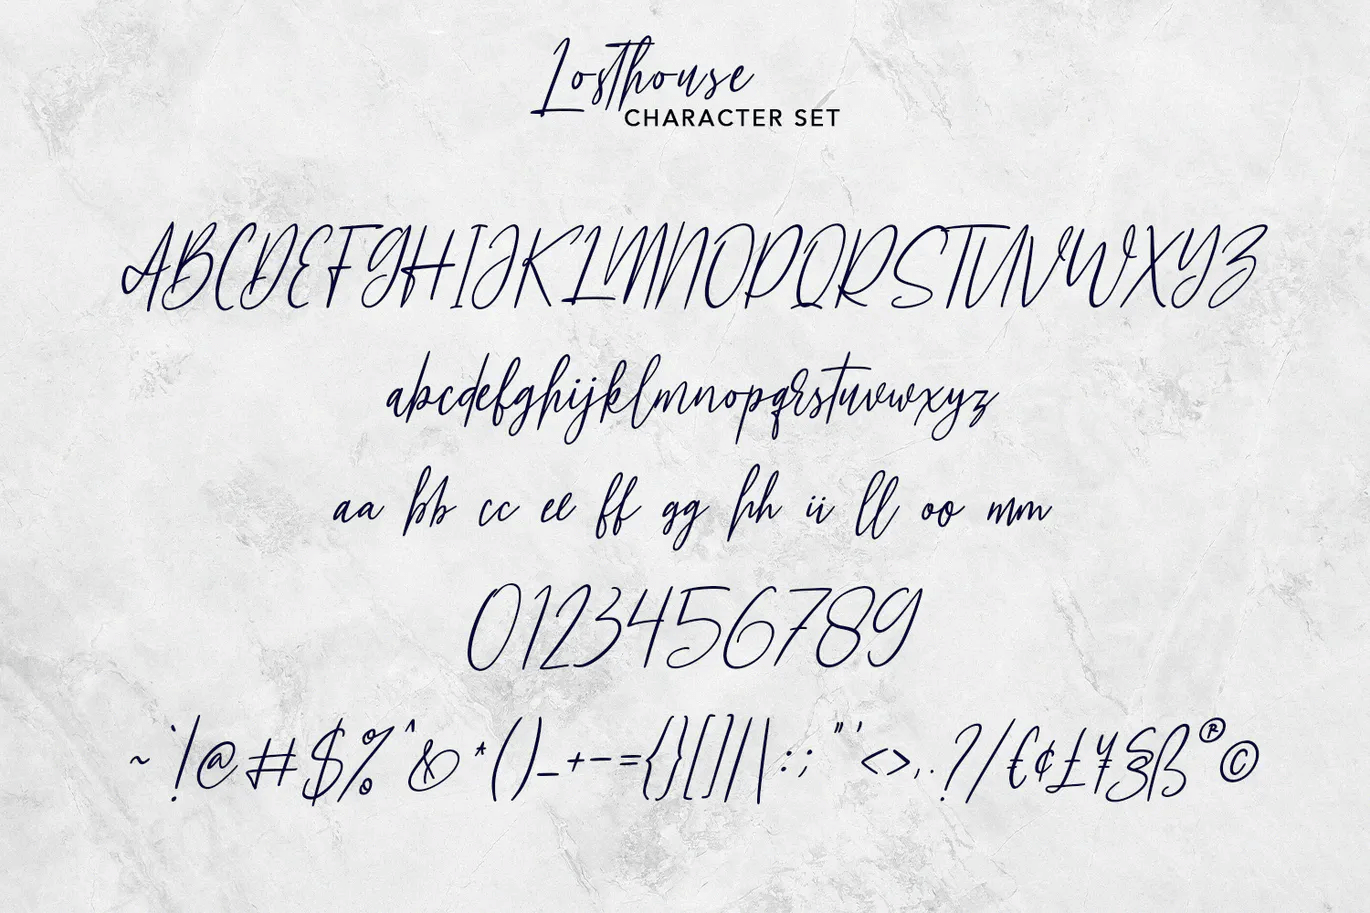 Losthouse
CHARACTER SET
ABCDEFGHIJKLMNOPQRSTUVWXYZ
abcdefghijklmnopqrstuvwxyz
aa bb cc ee ff gg hh ii ll oo mm
0123456789
~`!@#$%^&*()_+-={}[]||:;"'<>,.?/€¢£¥§ß®©